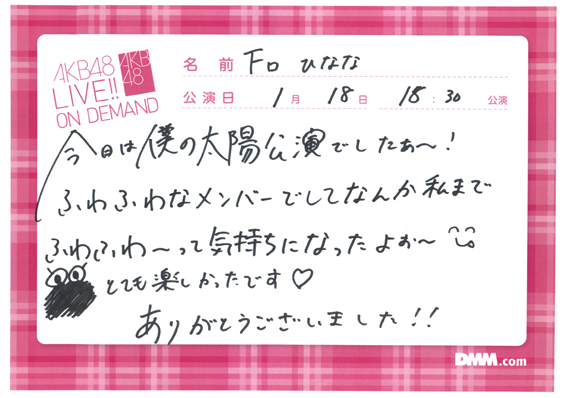 AKB48
LIVE!!
ON DEMAND
AKB
48
名前 下口 ひなな
公演日 1月 18日 18:30 公演
今日は僕の太陽公演でしたぁ〜!
ふわふわなメンバーでしてなんか私まで
ふわふわ〜って気持ちになったよぉ〜
とても楽しかったです♡
ありがとうございました!!
DMM.com